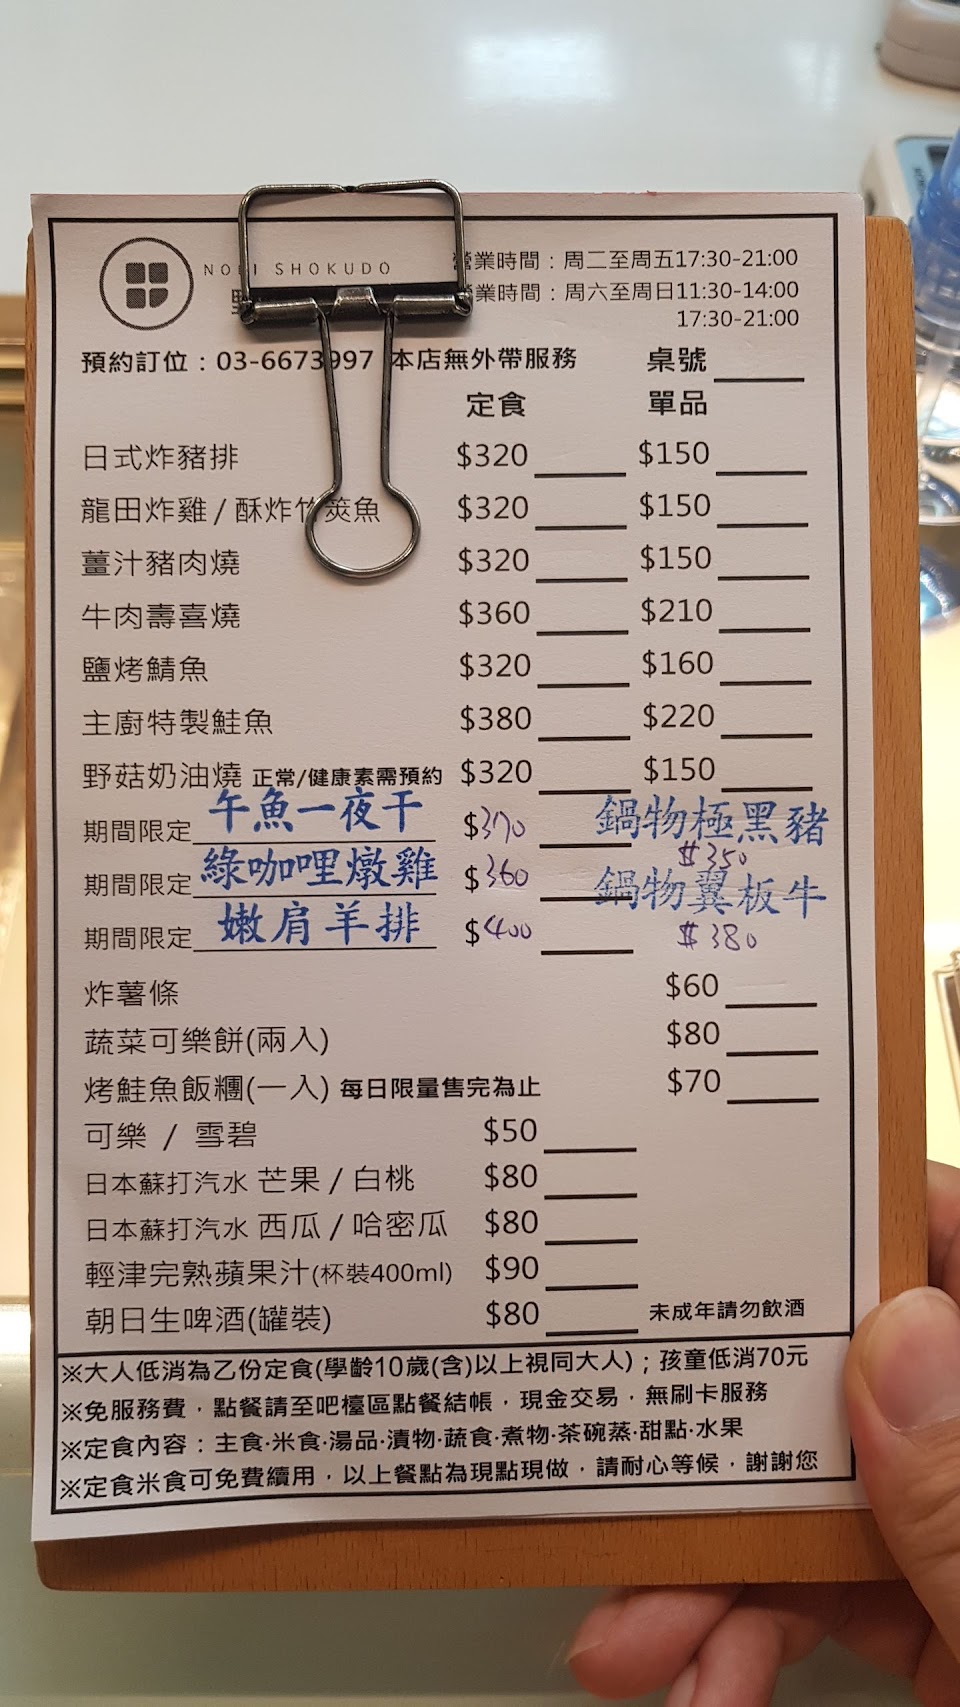 SHOKUDO
業時間：周二至周五17:30-21:00
業時間：周六至周日11:30-14:00
17:30-21:00
預約訂位：03-6673997 本店無外帶服務 桌號
定食 單品
日式炸豬排 $320 $150
龍田炸雞 / 酥炸竹莢魚 $320 $150
薑汁豬肉燒 $320 $150
牛肉壽喜燒 $360 $210
鹽烤鯖魚 $320 $160
主廚特製鮭魚 $380 $220
野菇奶油燒 正常/健康素需預約 $320 $150
期間限定 午魚一夜干 $370 鍋物極黑豬 $350
期間限定 綠咖哩燉雞 $360 鍋物翼板牛 $380
期間限定 嫩肩羊排 $400
炸薯條 $60
蔬菜可樂餅(兩入) $80
烤鮭魚飯糰(一入) 每日限量售完為止 $70
可樂 / 雪碧 $50
日本蘇打汽水 芒果 / 白桃 $80
日本蘇打汽水 西瓜 / 哈密瓜 $80
輕津完熟蘋果汁(杯裝400ml) $90
朝日生啤酒(罐裝) $80 未成年請勿飲酒
※大人低消為乙份定食(學齡10歲(含)以上視同大人)；孩童低消70元
※免服務費，點餐請至吧檯區點餐結帳，現金交易，無刷卡服務
※定食內容：主食·米食·湯品·漬物·蔬食·煮物·茶碗蒸·甜點·水果
※定食米食可免費續用，以上餐點為現點現做，請耐心等候，謝謝您